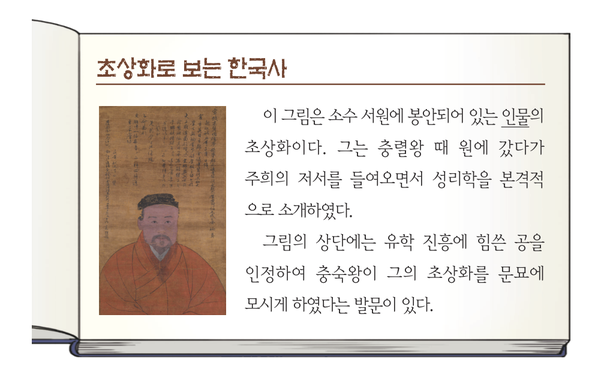 초상화로 보는 한국사
이 그림은 소수 서원에 봉안되어 있는 인물의
초상화이다. 그는 충렬왕 때 원에 갔다가
주희의 저서를 들여오면서 성리학을 본격적
으로 소개하였다.
그림의 상단에는 유학 진흥에 힘쓴 공을
인정하여 충숙왕이 그의 초상화를 문묘에
모시게 하였다는 발문이 있다.